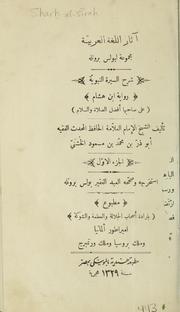 Sharh al-Sirah
آثار اللغة العربية
مجموعة لبولس برونله
شرح السيرة النبوية
رواية ابن هشام
(على صاحبها أفضل الصلاة والسلام)
تأليف الشيخ الإمام العلامة الحافظ المحدث الفقيه
أبو ذر بن محمد بن مسعود الخشني
الجزء الأول
استخرجه وصححه العبد الفقير بولس برونله
مطبوع
بارادة أصحاب الجلالة والعظمة والشوكة
امبراطور ألمانيا
وملك بروسيا وملك ورتمبرج
سنة ١٣٢٩ هجرية